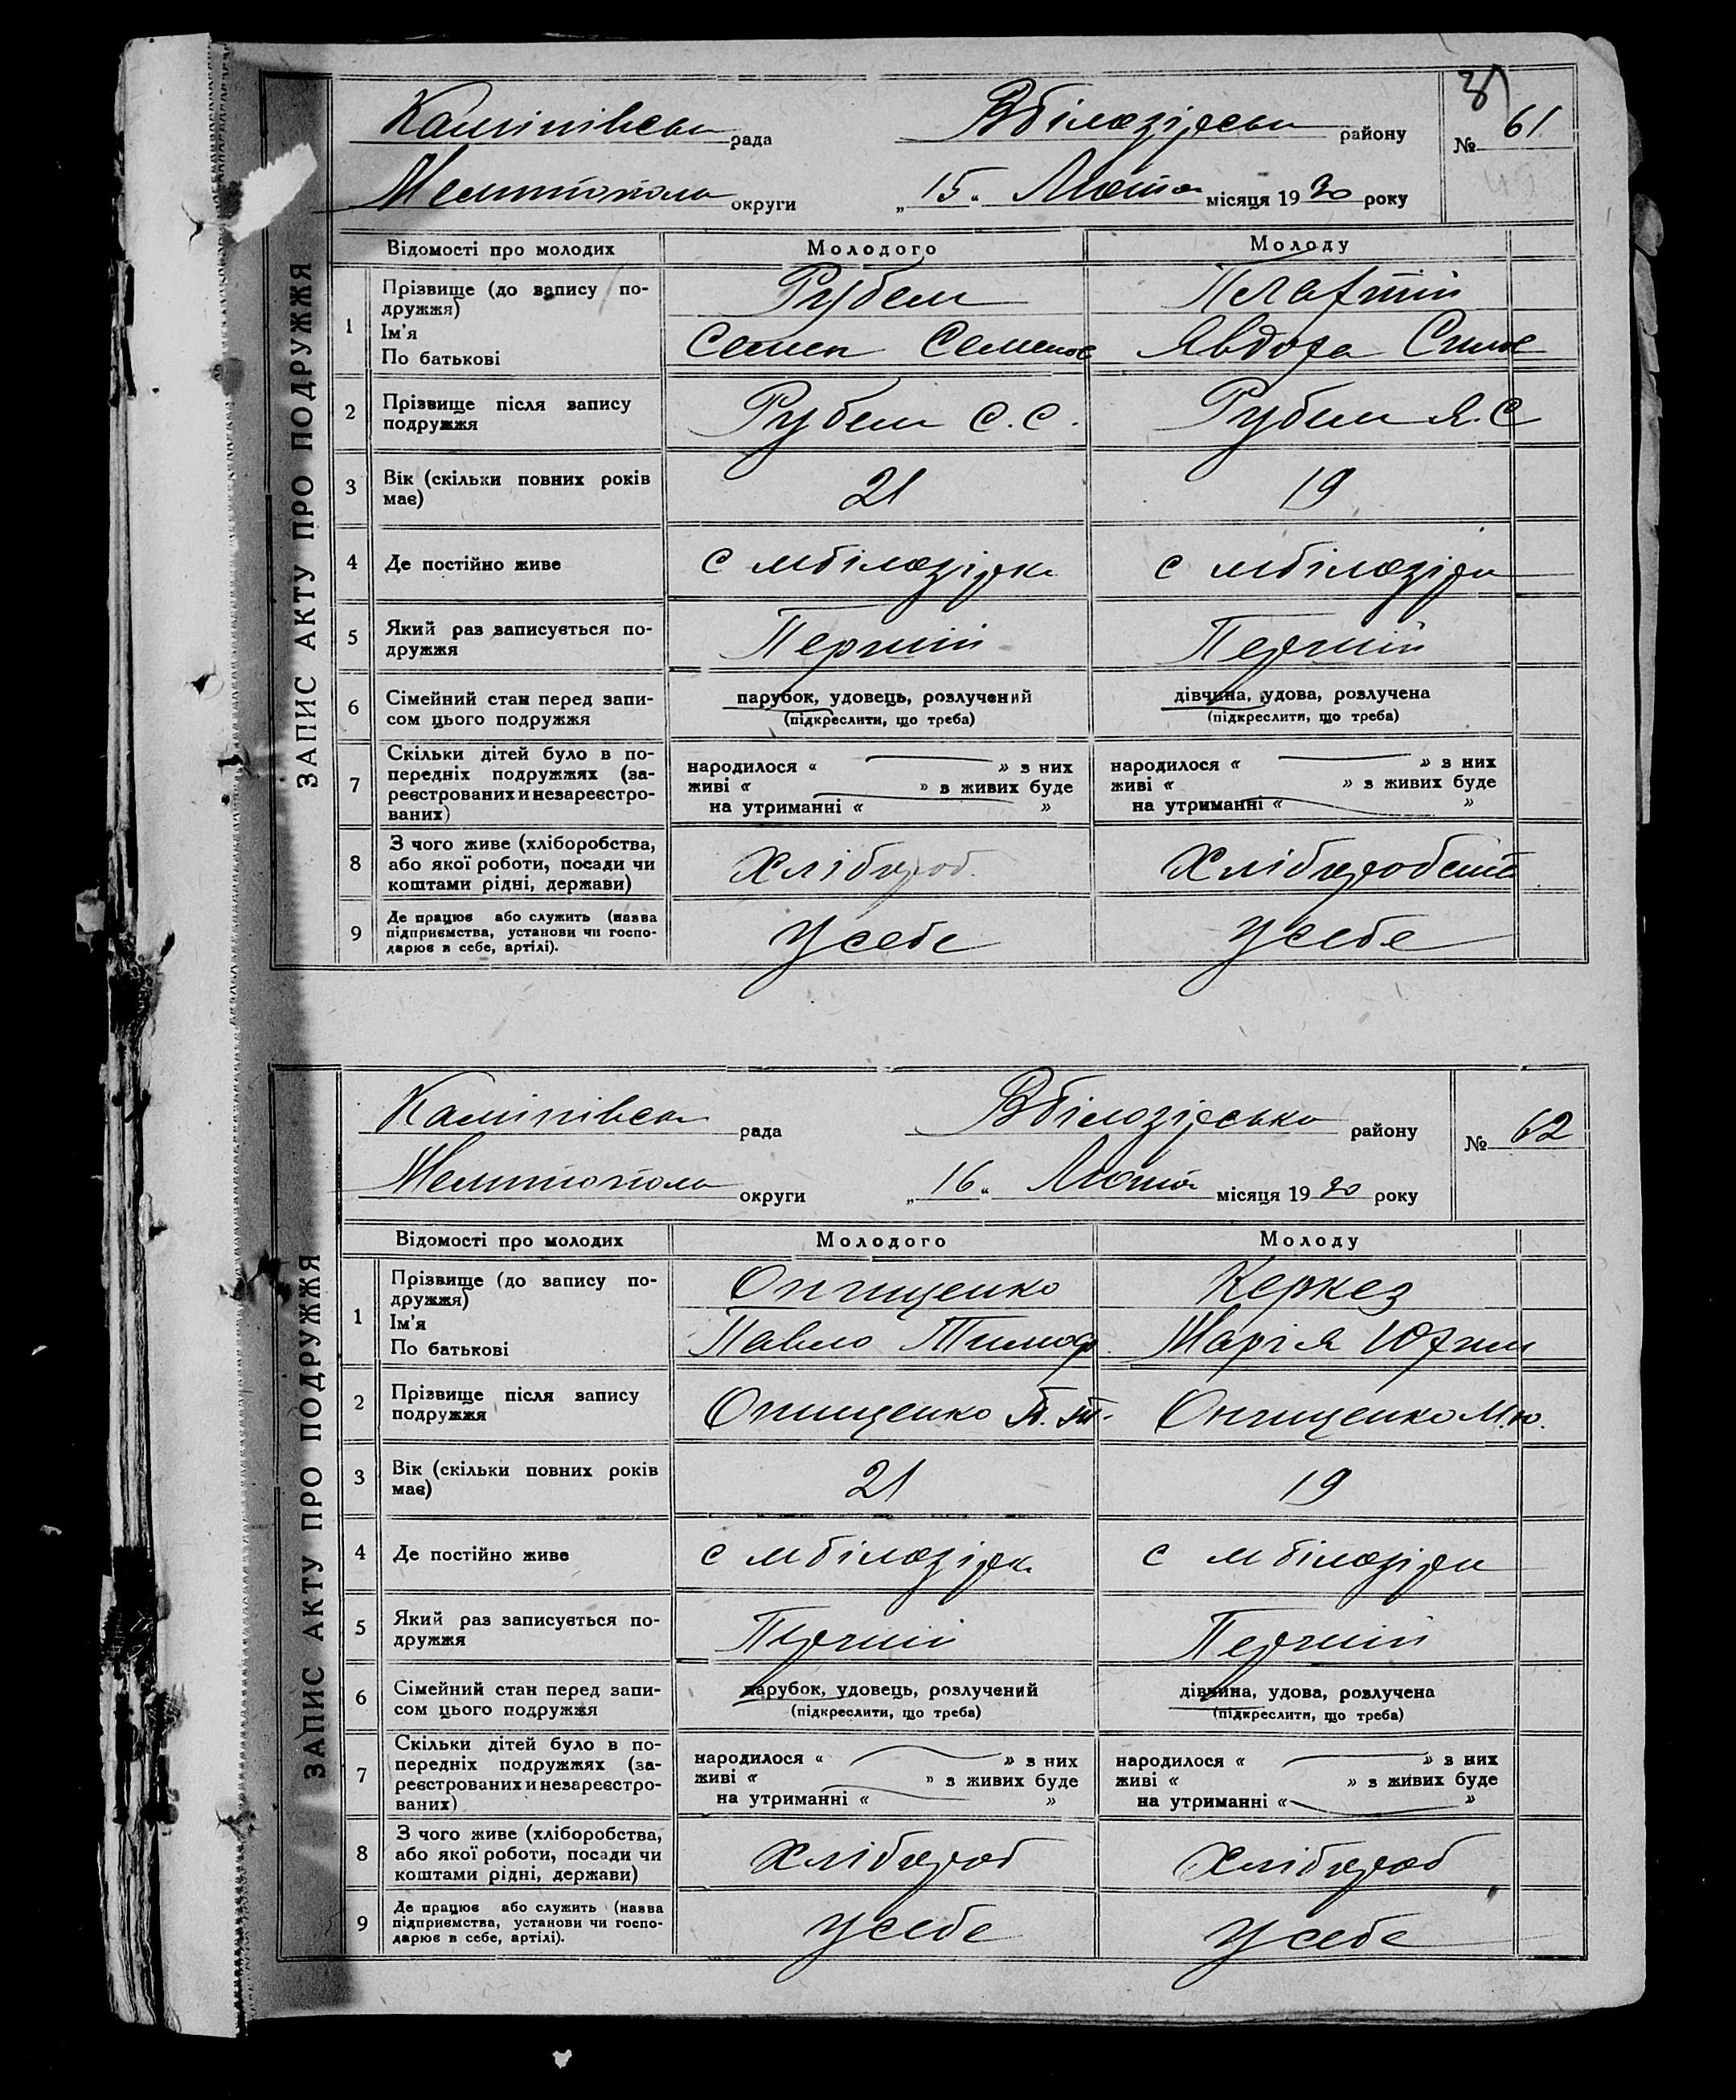 31
ЗАПИС АКТУ ПРО ПОДРУЖЖЯ
рада Вбілозірськ району № 61
Мелитополь округи „15“ Лютого місяця 1930 року
Відомості про молодих Молодого Молоду
1 Прізвище (до запису по-
дружжя)
Рубель
Ім'я
По батькові
Семен Семенов Явдоха
2 Прізвище після запису
подружжя
Рубель С. С. Рубель Я. С
3 Вік (скільки повних років
має)
21 19
4 Де постійно живе с мбілозірка с мбілозірка
5 Який раз записується по-
дружжя
Перший Перший
6 Сімейний стан перед запи-
сом цього подружжя
парубок, удовець, розлучений дівчина, удова, розлучена
(підкреслити, що треба) (підкреслити, що треба)
7 Скільки дітей було в по-
передніх подружжях (за-
реєстрованих и незареєстро-
ваних)
народилося « » з них народилося « » з них
живі « » з живих буде живі « » з живих буде
на утриманні « » на утриманні « »
8 З чого живе (хліборобства,
або якої роботи, посади чи
коштами рідні, держави)
Хлібороб. Хліборобств
9 Де працює або служить (назва
підприємства, установи чи госпо-
дарює в себе, артілі).
У себе У себе
ЗАПИС АКТУ ПРО ПОДРУЖЖЯ
рада Вбілозірсько району № 62
Мелитополь округи „16“ Лютого місяця 1930 року
Відомості про молодих Молодого Молоду
1 Прізвище (до запису по-
дружжя)
Онищенко Керкез
Ім'я
По батькові
Павло Тимоф. Марія Юхим
2 Прізвище після запису
подружжя
Онищенко П. Т. Онищенко М. Ю.
3 Вік (скільки повних років
має)
21 19
4 Де постійно живе с мбілозірк с мбілозірка
5 Який раз записується по-
дружжя
Перший Перший
6 Сімейний стан перед запи-
сом цього подружжя
парубок, удовець, розлучений дівчина, удова, розлучена
(підкреслити, що треба) (підкреслити, що треба)
7 Скільки дітей було в по-
передніх подружжях (за-
реєстрованих и незареєстро-
ваних)
народилося « » з них народилося « » з них
живі « » з живих буде живі « » з живих буде
на утриманні « » на утриманні « »
8 З чого живе (хліборобства,
або якої роботи, посади чи
коштами рідні, держави)
Хлібороб Хлібороб
9 Де працює або служить (назва
підприємства, установи чи госпо-
дарює в себе, артілі).
У себе У себе